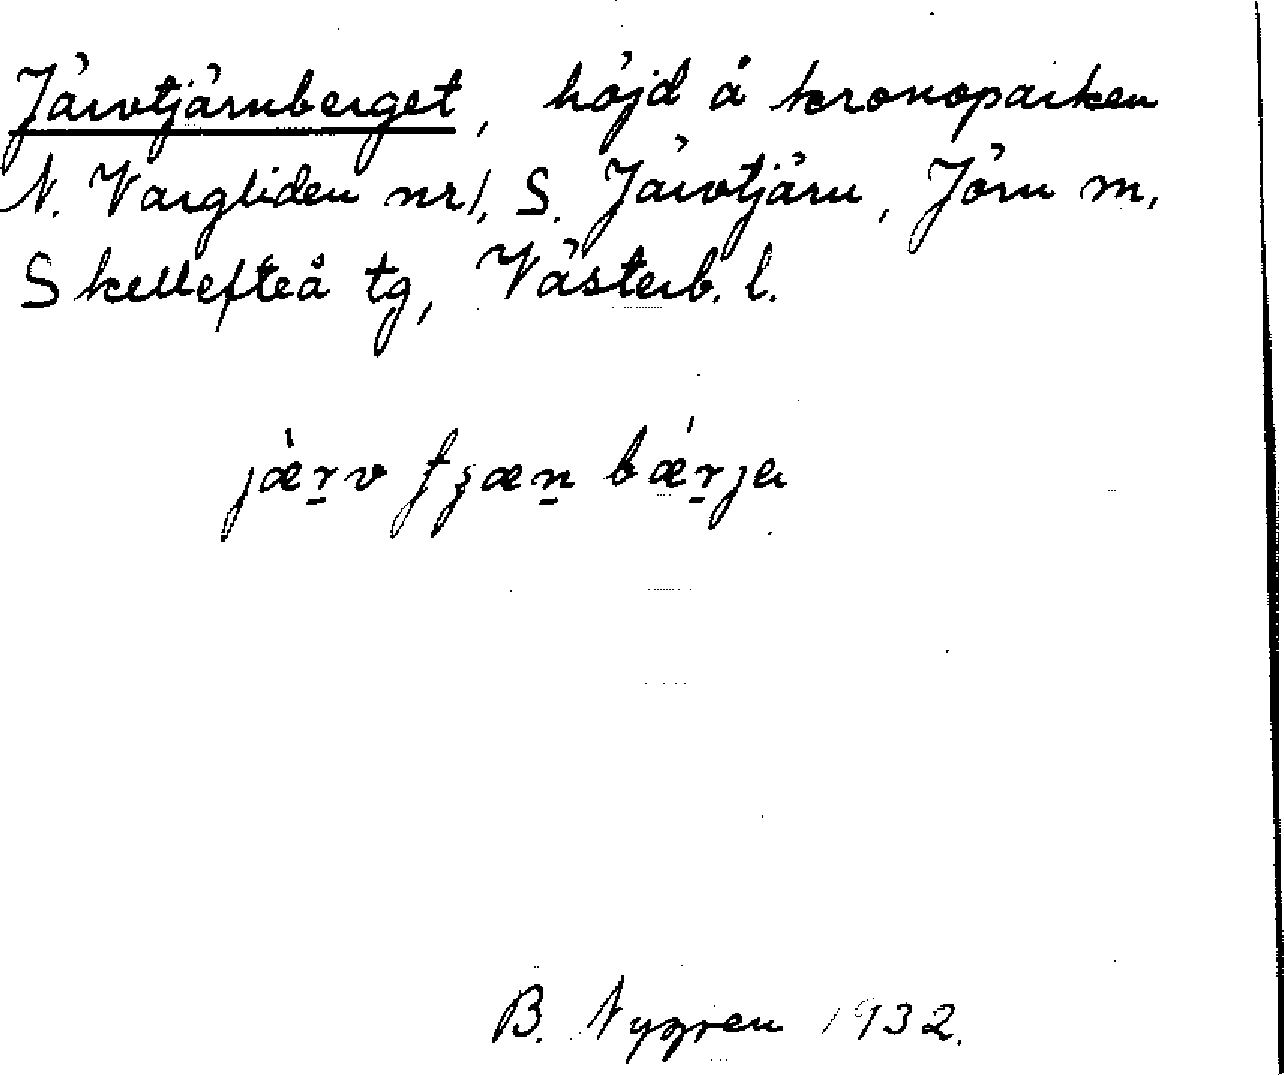 Järvtjärnberget, höjd å kronoparken
N. Vargliden nr 1, S. Järvtjärn, Jörn m,
Skellefteå tg, Västerb. l.
jæ̀r̠v tʒæn̠ bǽr̠jɐ
B. Nygren 1932.